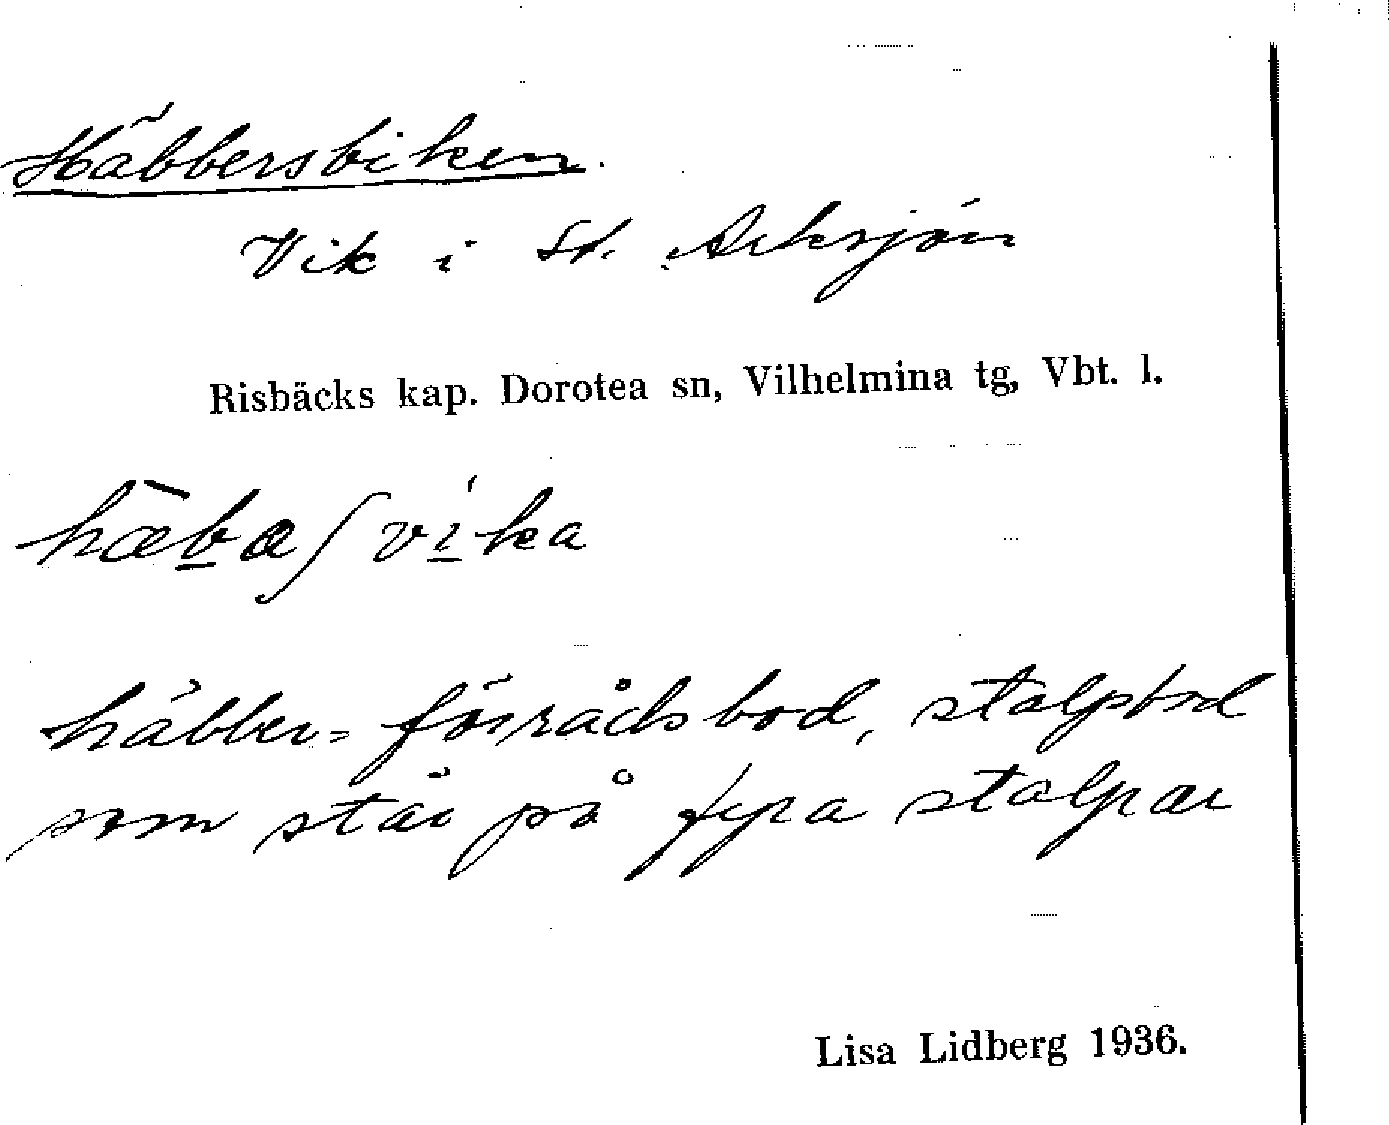 Häbbersviken.
Vik i St. Arksjön
Risbäcks kap. Dorotea sn, Vilhelmina tg, Vbt. l.
hæbaʃvika
häbber = förrådsbod, stolpbod
som står på fyra stolpar
Lisa Lidberg 1936.